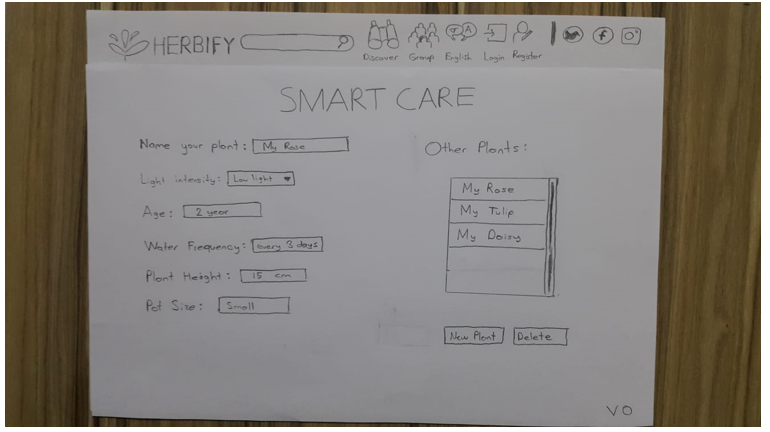 HERBIFY
Discover Group English Login Register
SMART CARE
Name your plant: My Rose
Light intensity: Low light
Age: 2 year
Water Frequency: every 3 days
Plant Height: 15 cm
Pot Size: Small
Other Plants:
My Rose
My Tulip
My Daisy
New Plant Delete
VO